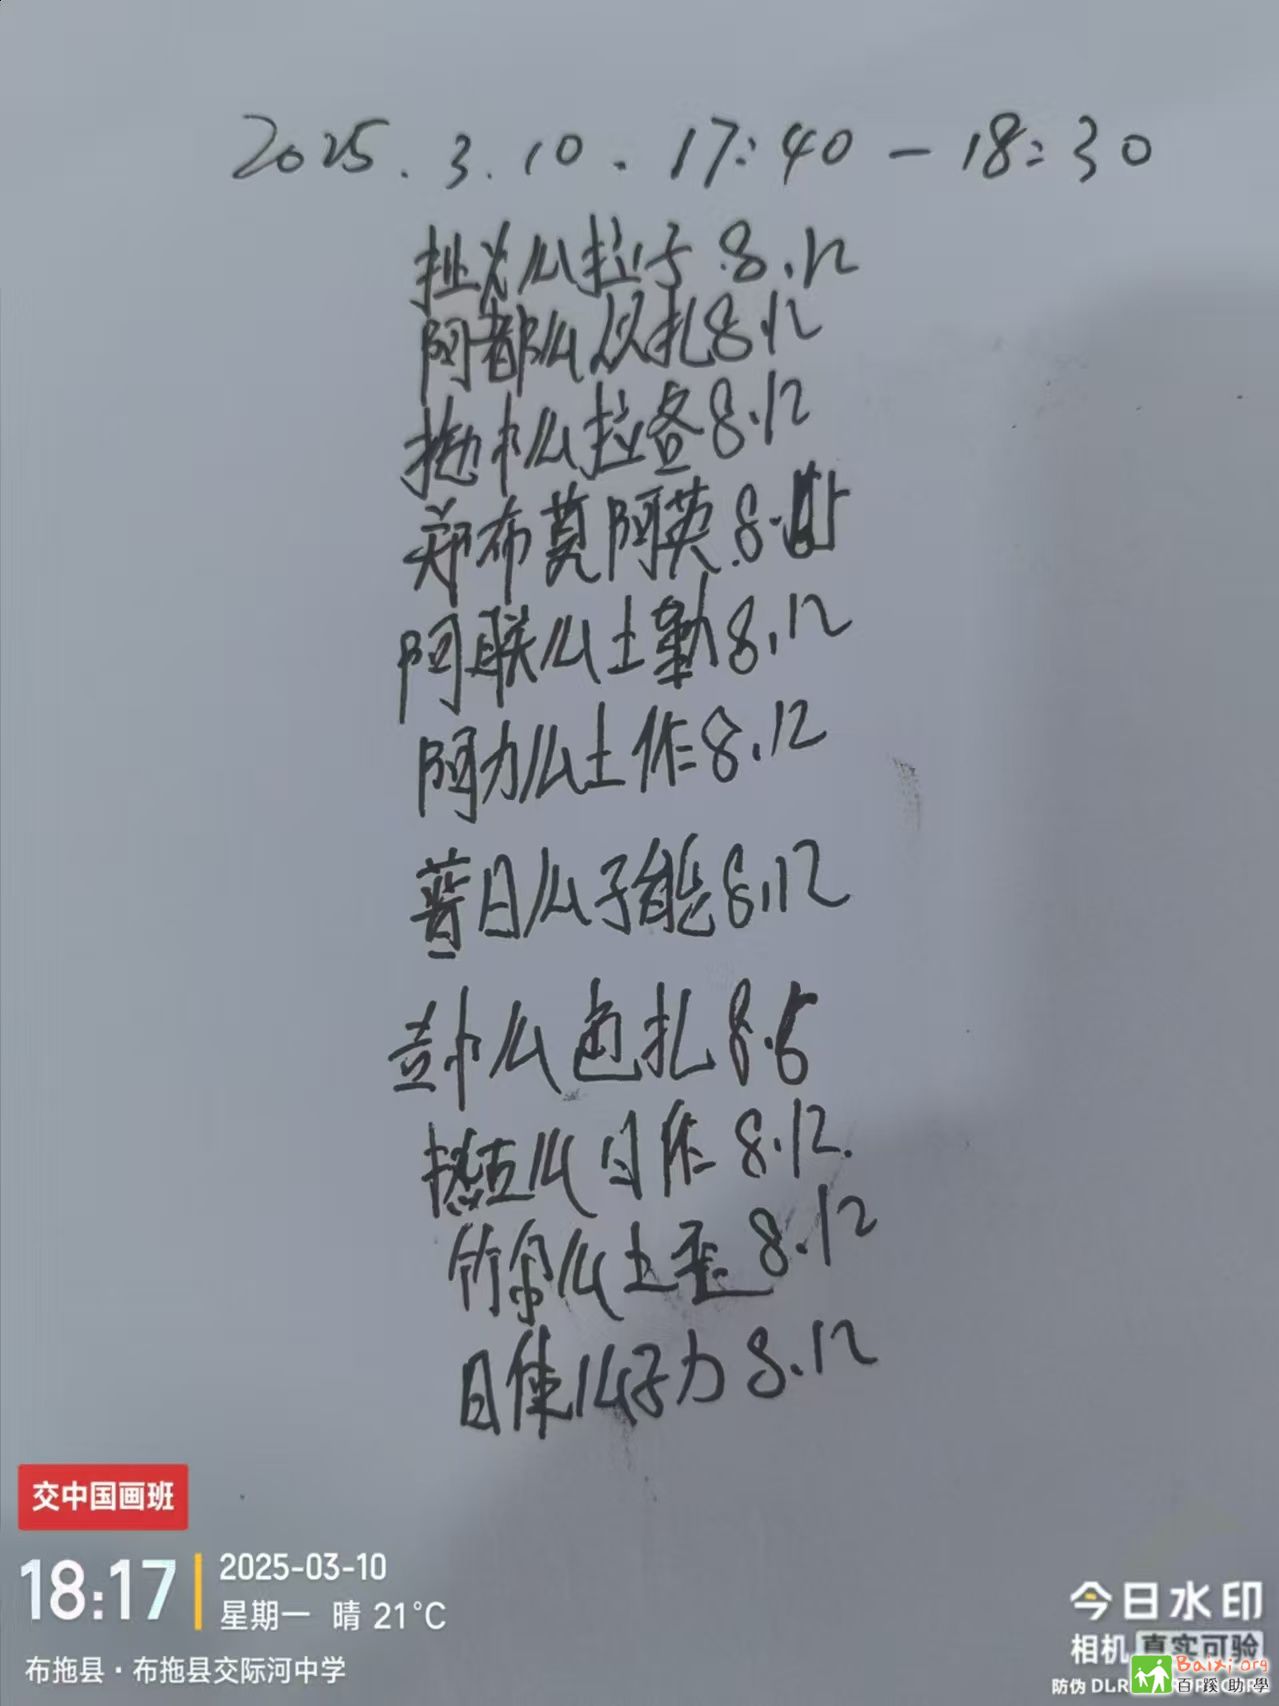 2025.3.10.17:40-18:30
么拉子.8.12
阿都么从扎8.12
么拉各8.12
郑布莫阿英.8.
阿联么土勤8.12
阿力么土作8.12
普日么子能8.12
么卤扎8.5
么日作8.12.
么土歪8.12
日使么子力8.12
交中国画班
18:17
2025-03-10
星期一 晴 21°C
布拖县·布拖县交际河中学
今日水印
相机 真实可验
防伪 DLR
Baixi.org
百蹊助學